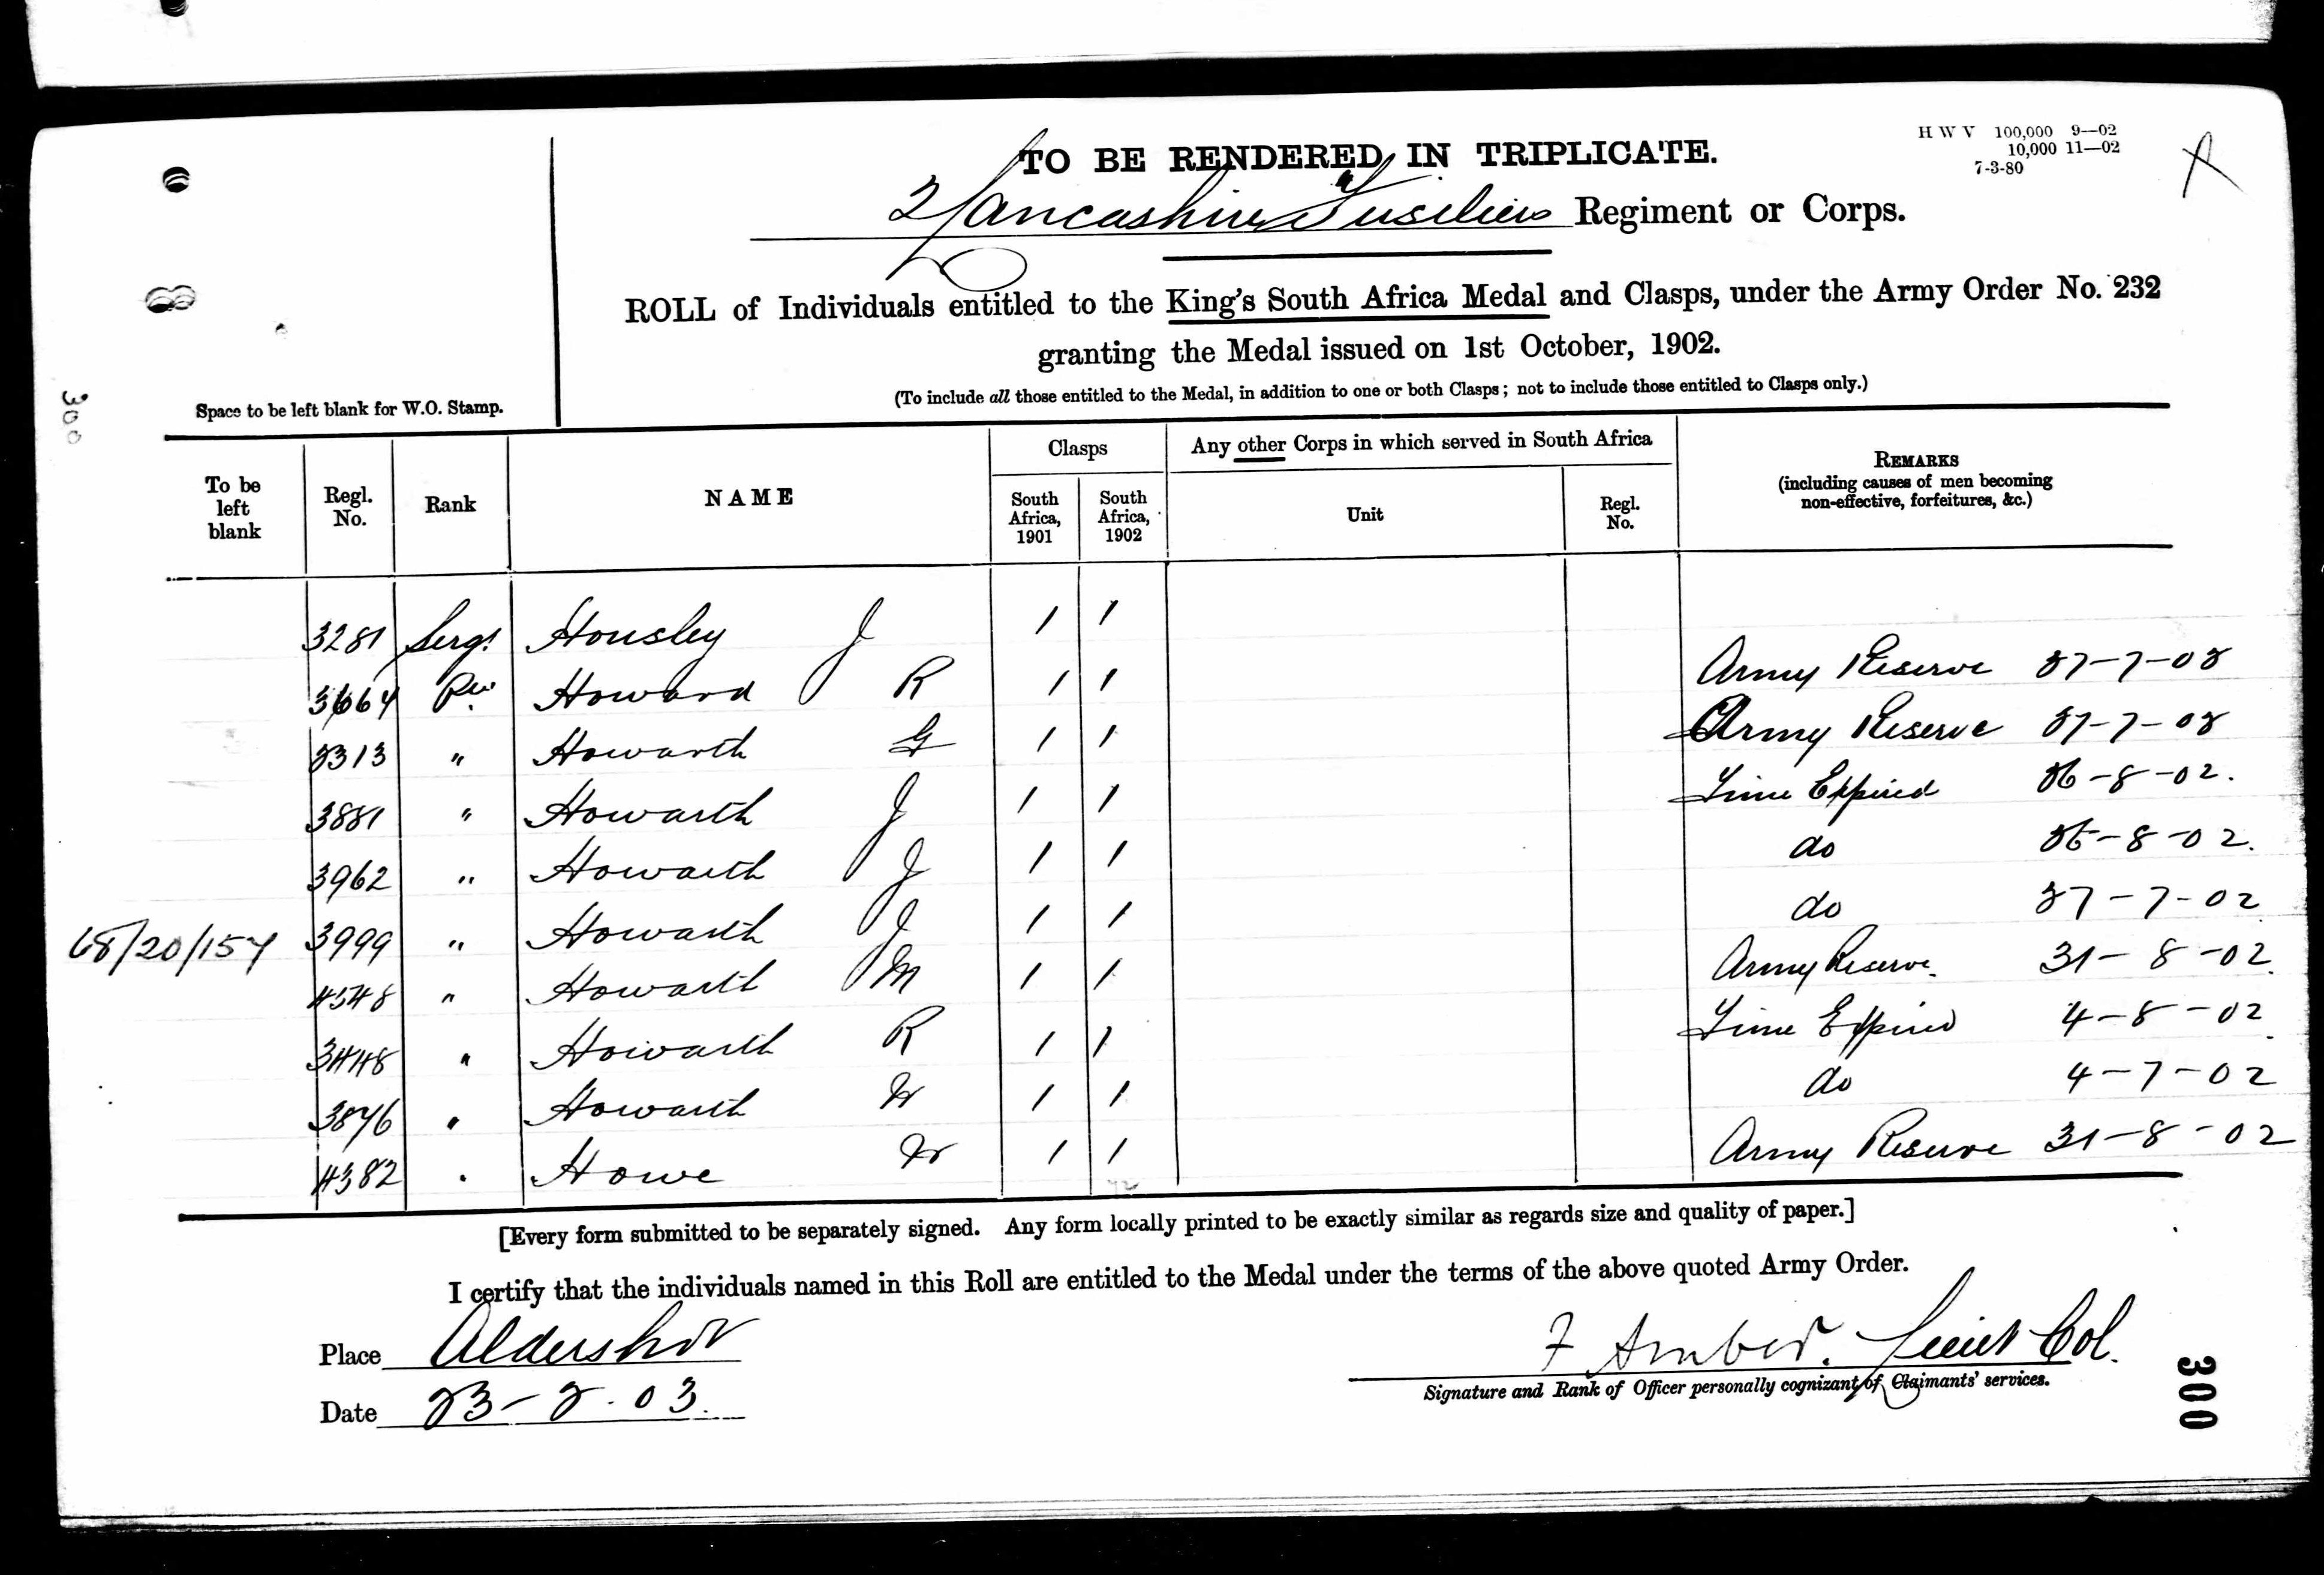 H W V 100,000 9—02
10,000 11—02
7-3-80
TO BE RENDERED IN TRIPLICATE.
2/Lancashire Fusiliers Regiment or Corps.
ROLL of Individuals entitled to the King's South Africa Medal and Clasps, under the Army Order No. 232
granting the Medal issued on 1st October, 1902.
(To include all those entitled to the Medal, in addition to one or both Clasps; not to include those entitled to Clasps only.)
Space to be left blank for W.O. Stamp.
300
To be left blank | Regl. No. | Rank | NAME | Clasps | Any other Corps in which served in South Africa | REMARKS (including causes of men becoming non-effective, forfeitures, &c.)
South Africa, 1901 | South Africa, 1902 | Unit | Regl. No.
3281 Sergt Housley J 1 1
3664 Pte Howard R 1 1 Army Reserve 27-7-02
2313 " Howarth G 1 1 Army Reserve 27-7-02
3881 " Howarth J 1 1 Time Expired 26-8-02.
3962 " Howarth J 1 1 do 26-8-02.
68/20/154 3999 " Howarth J 1 1 do 27-7-02
4548 " Howarth M 1 1 Army Reserve. 31-8-02.
3448 " Howarth R 1 1 Time Expired 4-8-02.
3876 " Howarth W 1 1 do 4-7-02
4382 " Howe W 1 1 Army Reserve 31-8-02
[Every form submitted to be separately signed. Any form locally printed to be exactly similar as regards size and quality of paper.]
I certify that the individuals named in this Roll are entitled to the Medal under the terms of the above quoted Army Order.
Place Aldershot
Date 23-2.03.
Lieut Col.
Signature and Rank of Officer personally cognizant of Claimants' services.
300